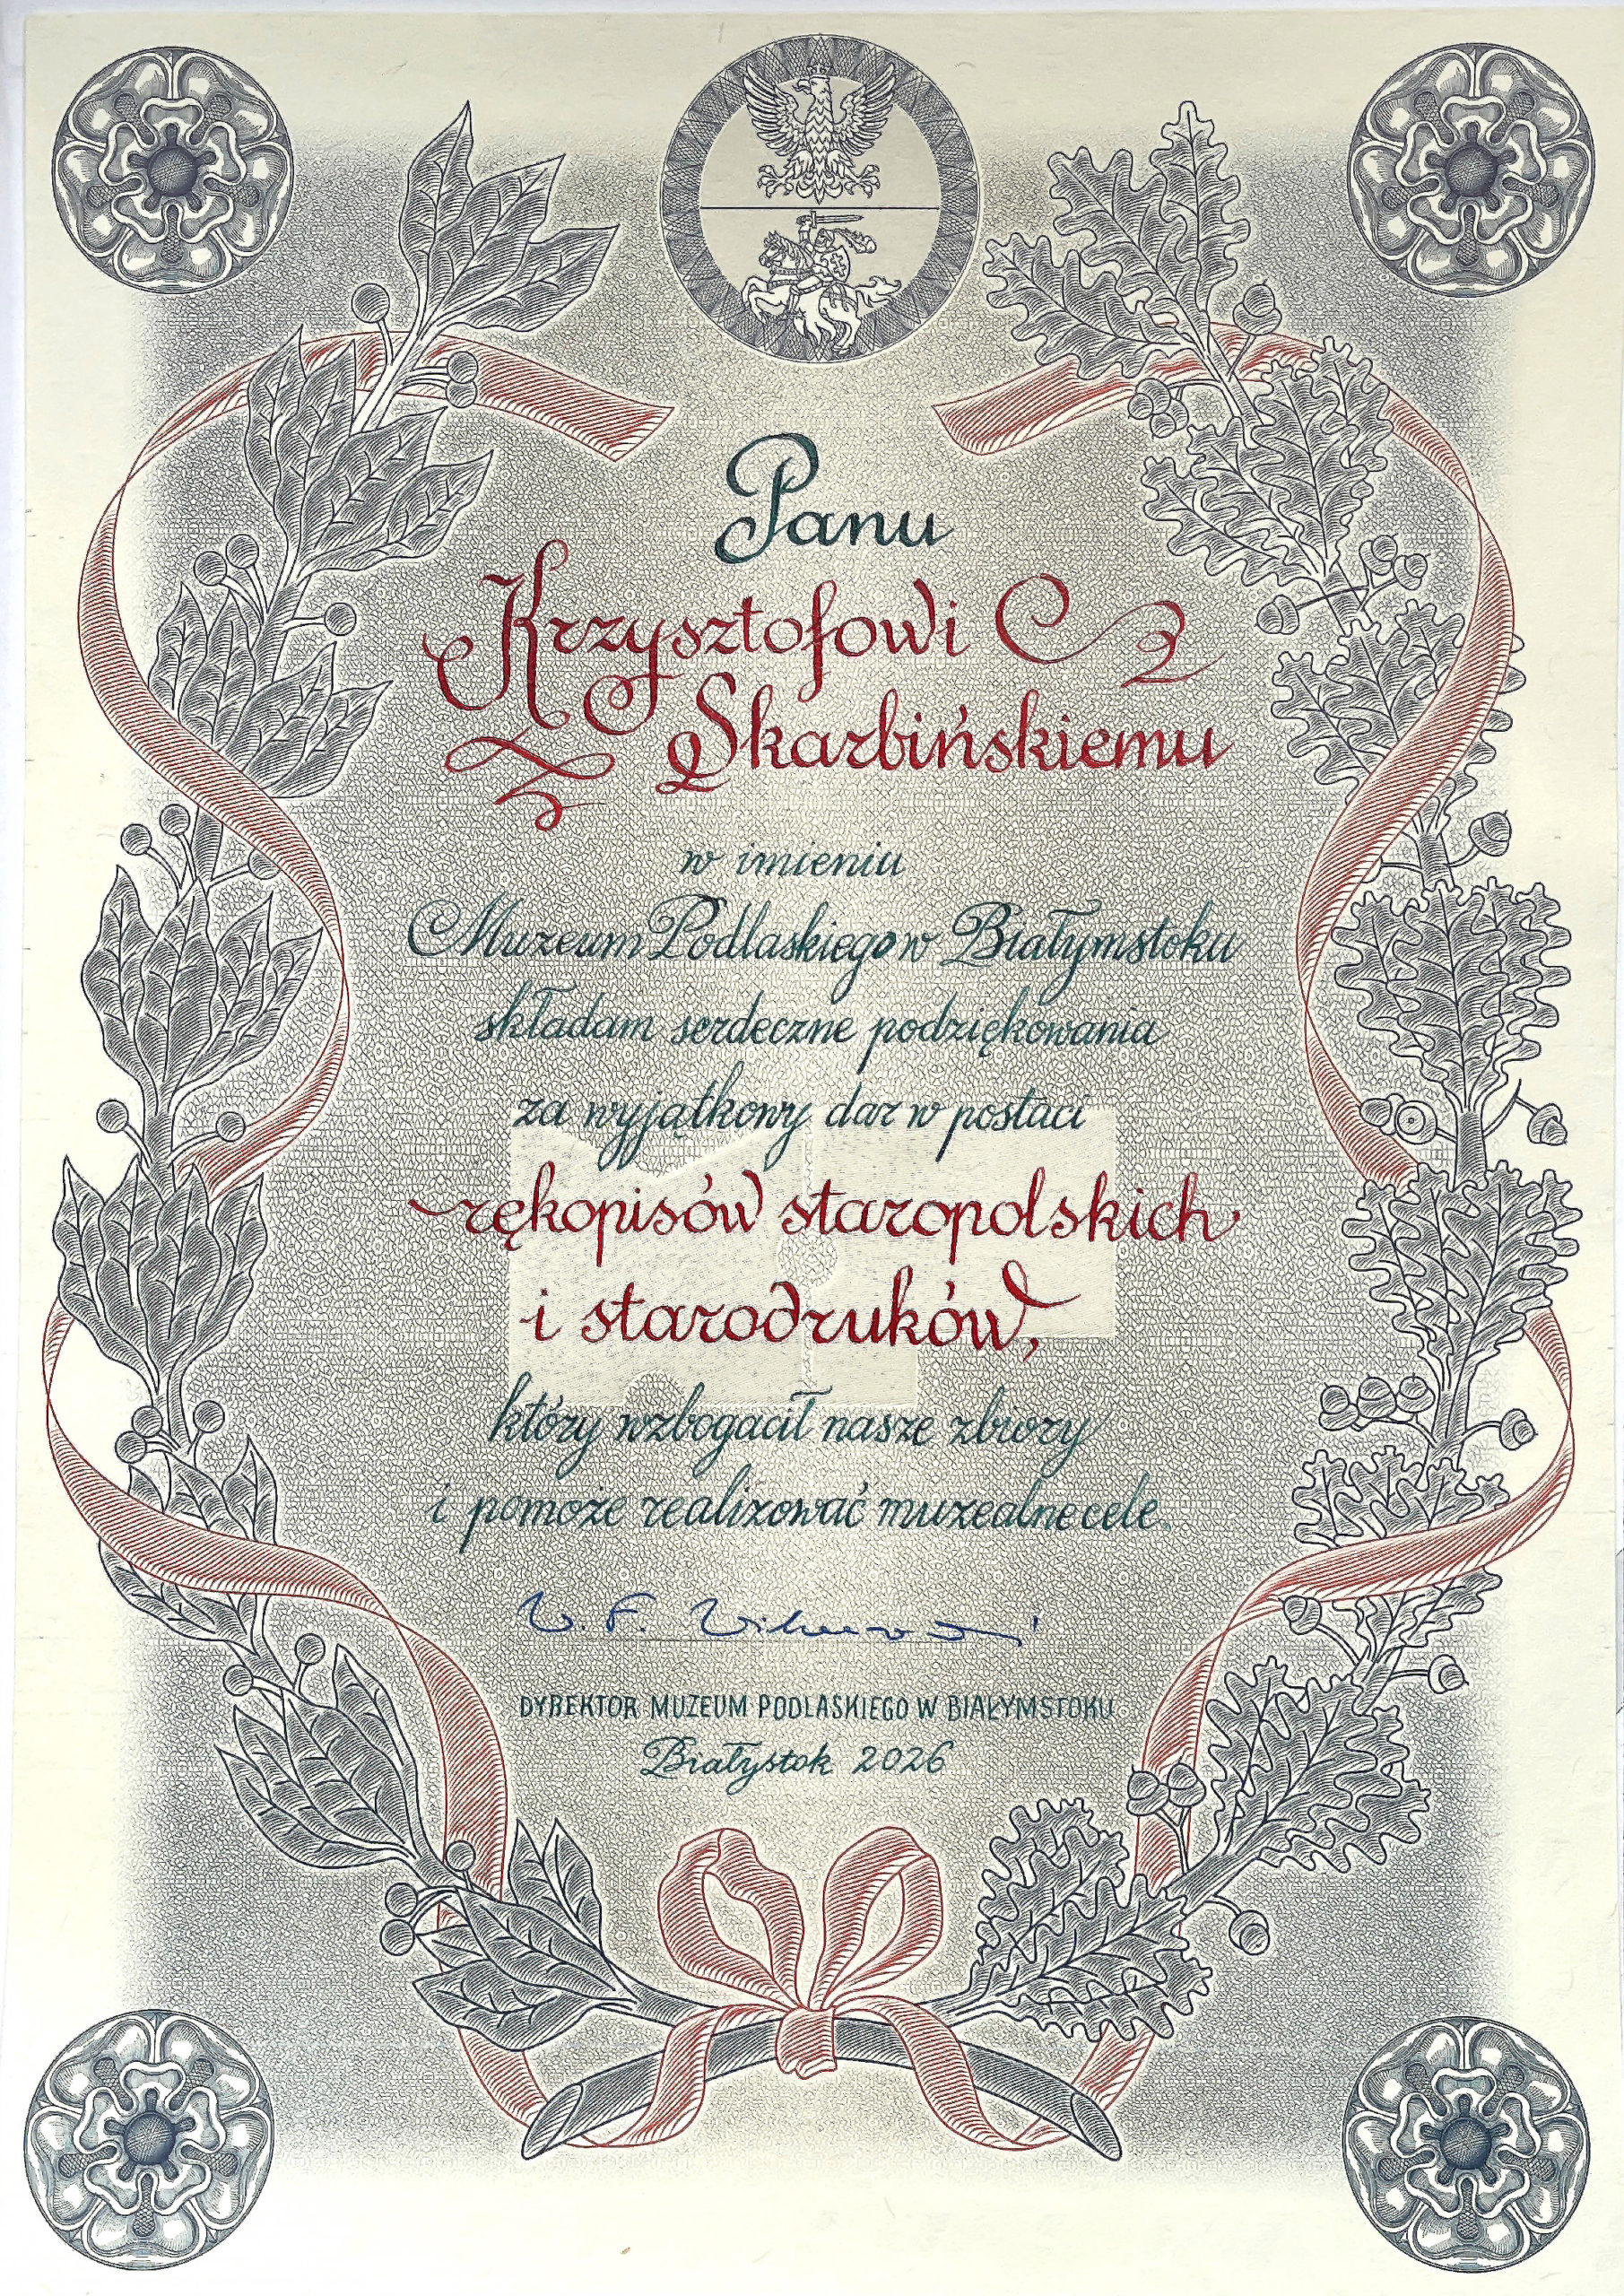 Panu
Krzysztofowi
Skarbińskiemu
w imieniu
Muzeum Podlaskiego w Białymstoku
składam serdeczne podziękowania
za wyjątkowy dar w postaci
rękopisów staropolskich
i starodruków,
który wzbogacił nasze zbiory
i pomoże realizować muzealne cele.
DYREKTOR MUZEUM PODLASKIEGO W BIAŁYMSTOKU
Białystok 2026